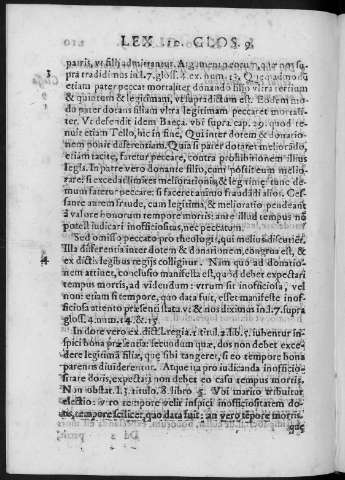 LEX 11D. GLOS. 9.
patris, vt filij admittantur. Argumento eorum, quæ nos su
3 pra tradidi nos in l.7. gloss. 4. ex. num. 13. Quēadmodū
etiam pater peccat mortaliter donando filio vltra tertium
& quintum & legitimam, vt supra dictum est. Eodem mo
do pater dotans filiam vltra legitimam peccaret mortali
ter. Vt defendit idem Baeça. vbi supra cap. 29. quod te-
nuit etiam Tello, hic in fine, Qui inter dotem & donatio-
nem ponit deferentiam. Quia si pater dotaret meliorādo,
etiam tacite, faretur peccare, contra prohibitionem illius
legis. In patre vero donante filio, cum possit eum meliò
rare: si excedat limites meliorationis, & legitimę tunc de-
mum fatetur peccare: si faceret animo fraudādi alios. Ces-
sante autem fraude, cum legitima, & melioratio pendeant
à valore bonorum tempore mortis: ante illud tempus nō
potest iudicari inofficiositas, nec peccatum.
Sed omisso peccato pro theologis, qui melius discutiēt.
Illa differentia inter dotem & donationem, congrua est, &
4 ex dictis legibus regijs colligitur. Nam quo ad donatio-
nem attinet, conclusio manifesta est, quòd debet expectari
tempus mortis, ad videndum: vtrum sit inofficiosa, vel
non: etiam si tempore, quo data fuit, esset manifeste inof-
ficiosa attento præsenti statu. vt & nos diximus in l.7. supra
gloss. 4. num. 14. & 15.
In dote vero ex dict. l. regia. 1. titul. 2. lib. 5. iubentur in-
spici bona præsentia: secundum quæ, dos non debet exce-
dere legitimā filiæ, quę sibi tangeret, si eo tempore bona
parentis diuiderentur. Atque ita pro iudicanda inofficio-
sitate doris, expectari non debet eo casu tempus mortis.
Non obstat. l. 3. titulo. 8. libro 5. Vbi marito tribuitur
electio: vtro tempore velit inspici inofficiositatem do-
tis, tempore scilicet, quo data fuit: an vero tēpore mortis.